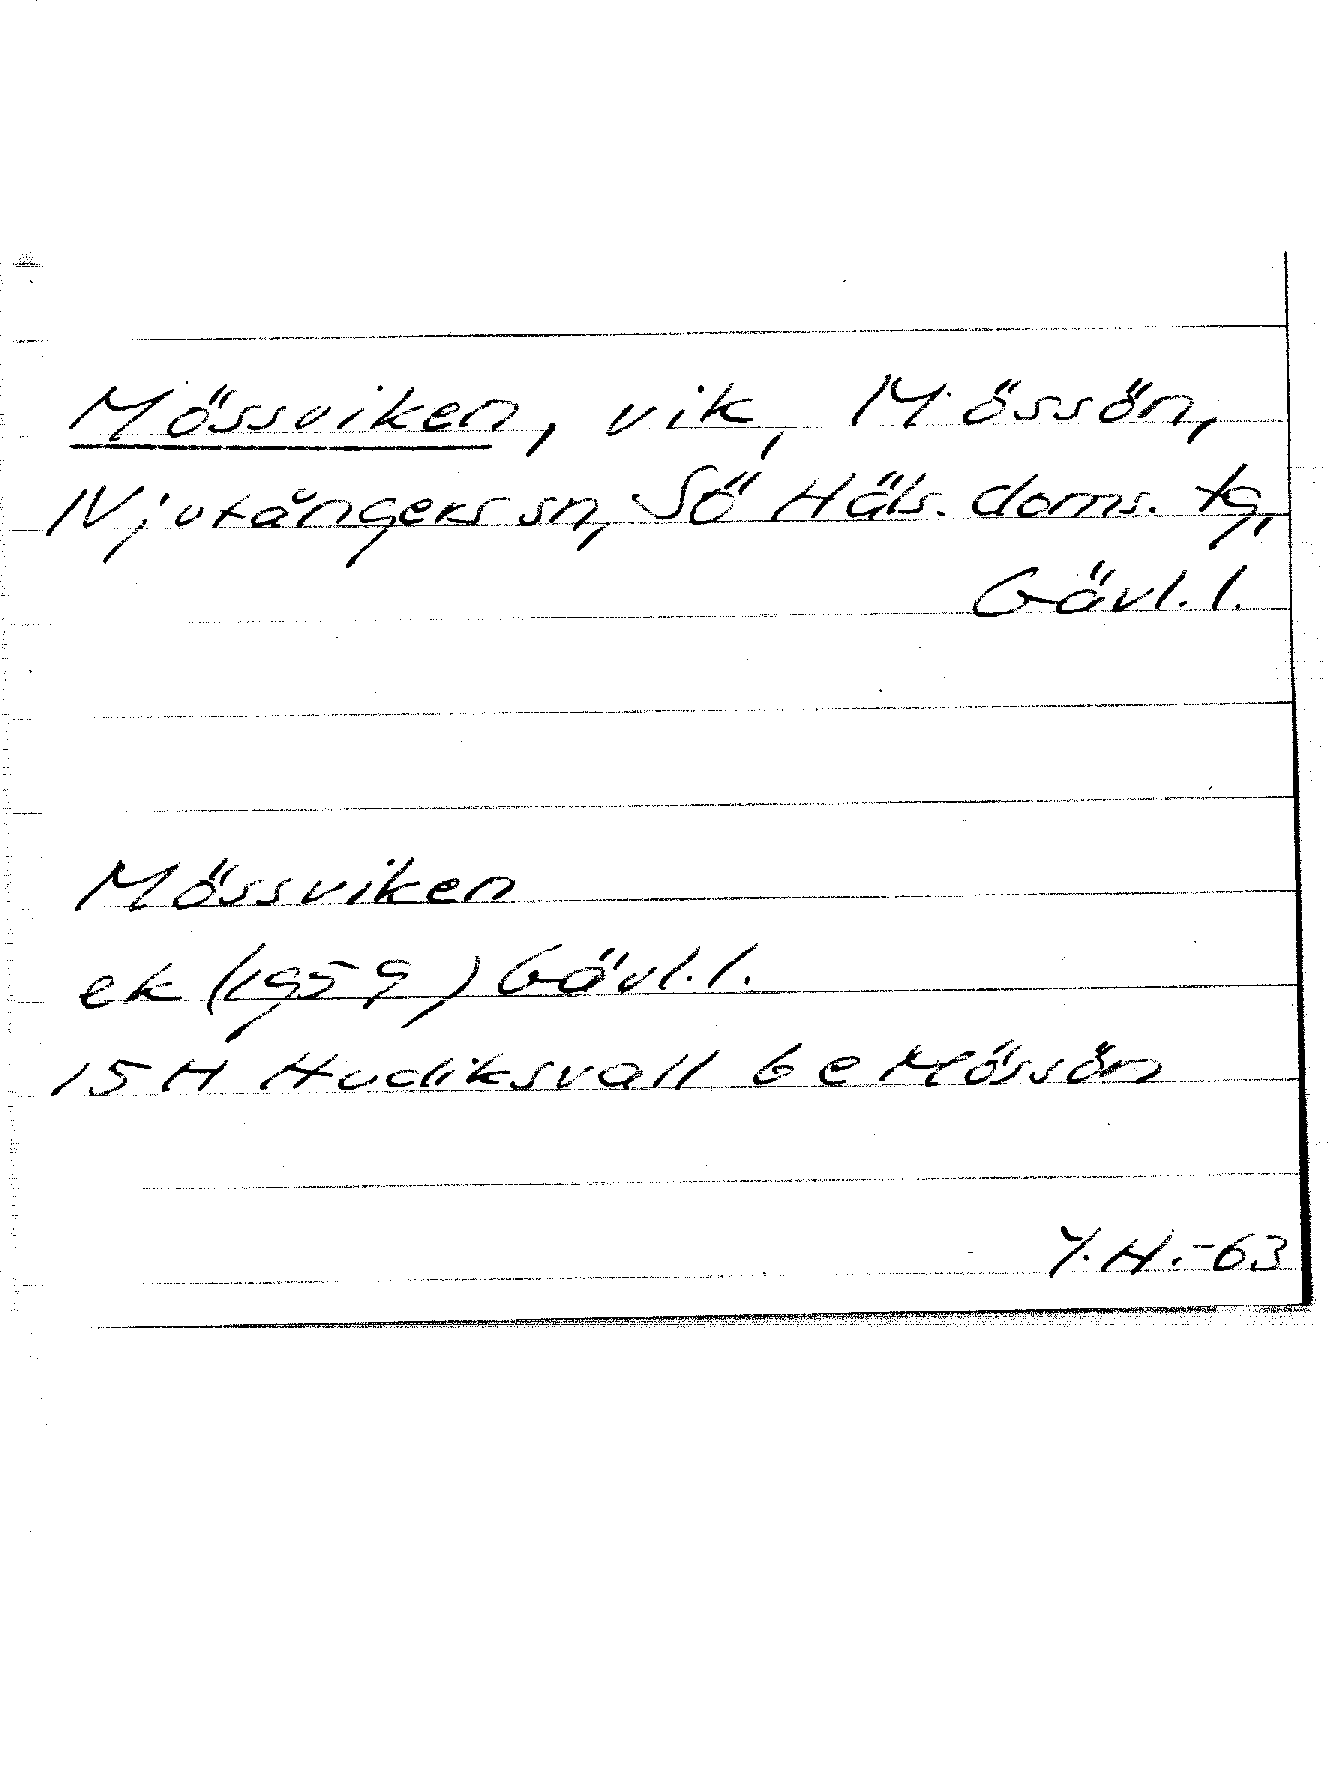 Mössviken, vik, Mössön,
Njutångers sn, Sö Häls. doms. tg,
Gävl. l.
Mössviken
ek (1959) Gävl. l.
15 H Hudiksvall 6 e Mössön
Y. H. -63